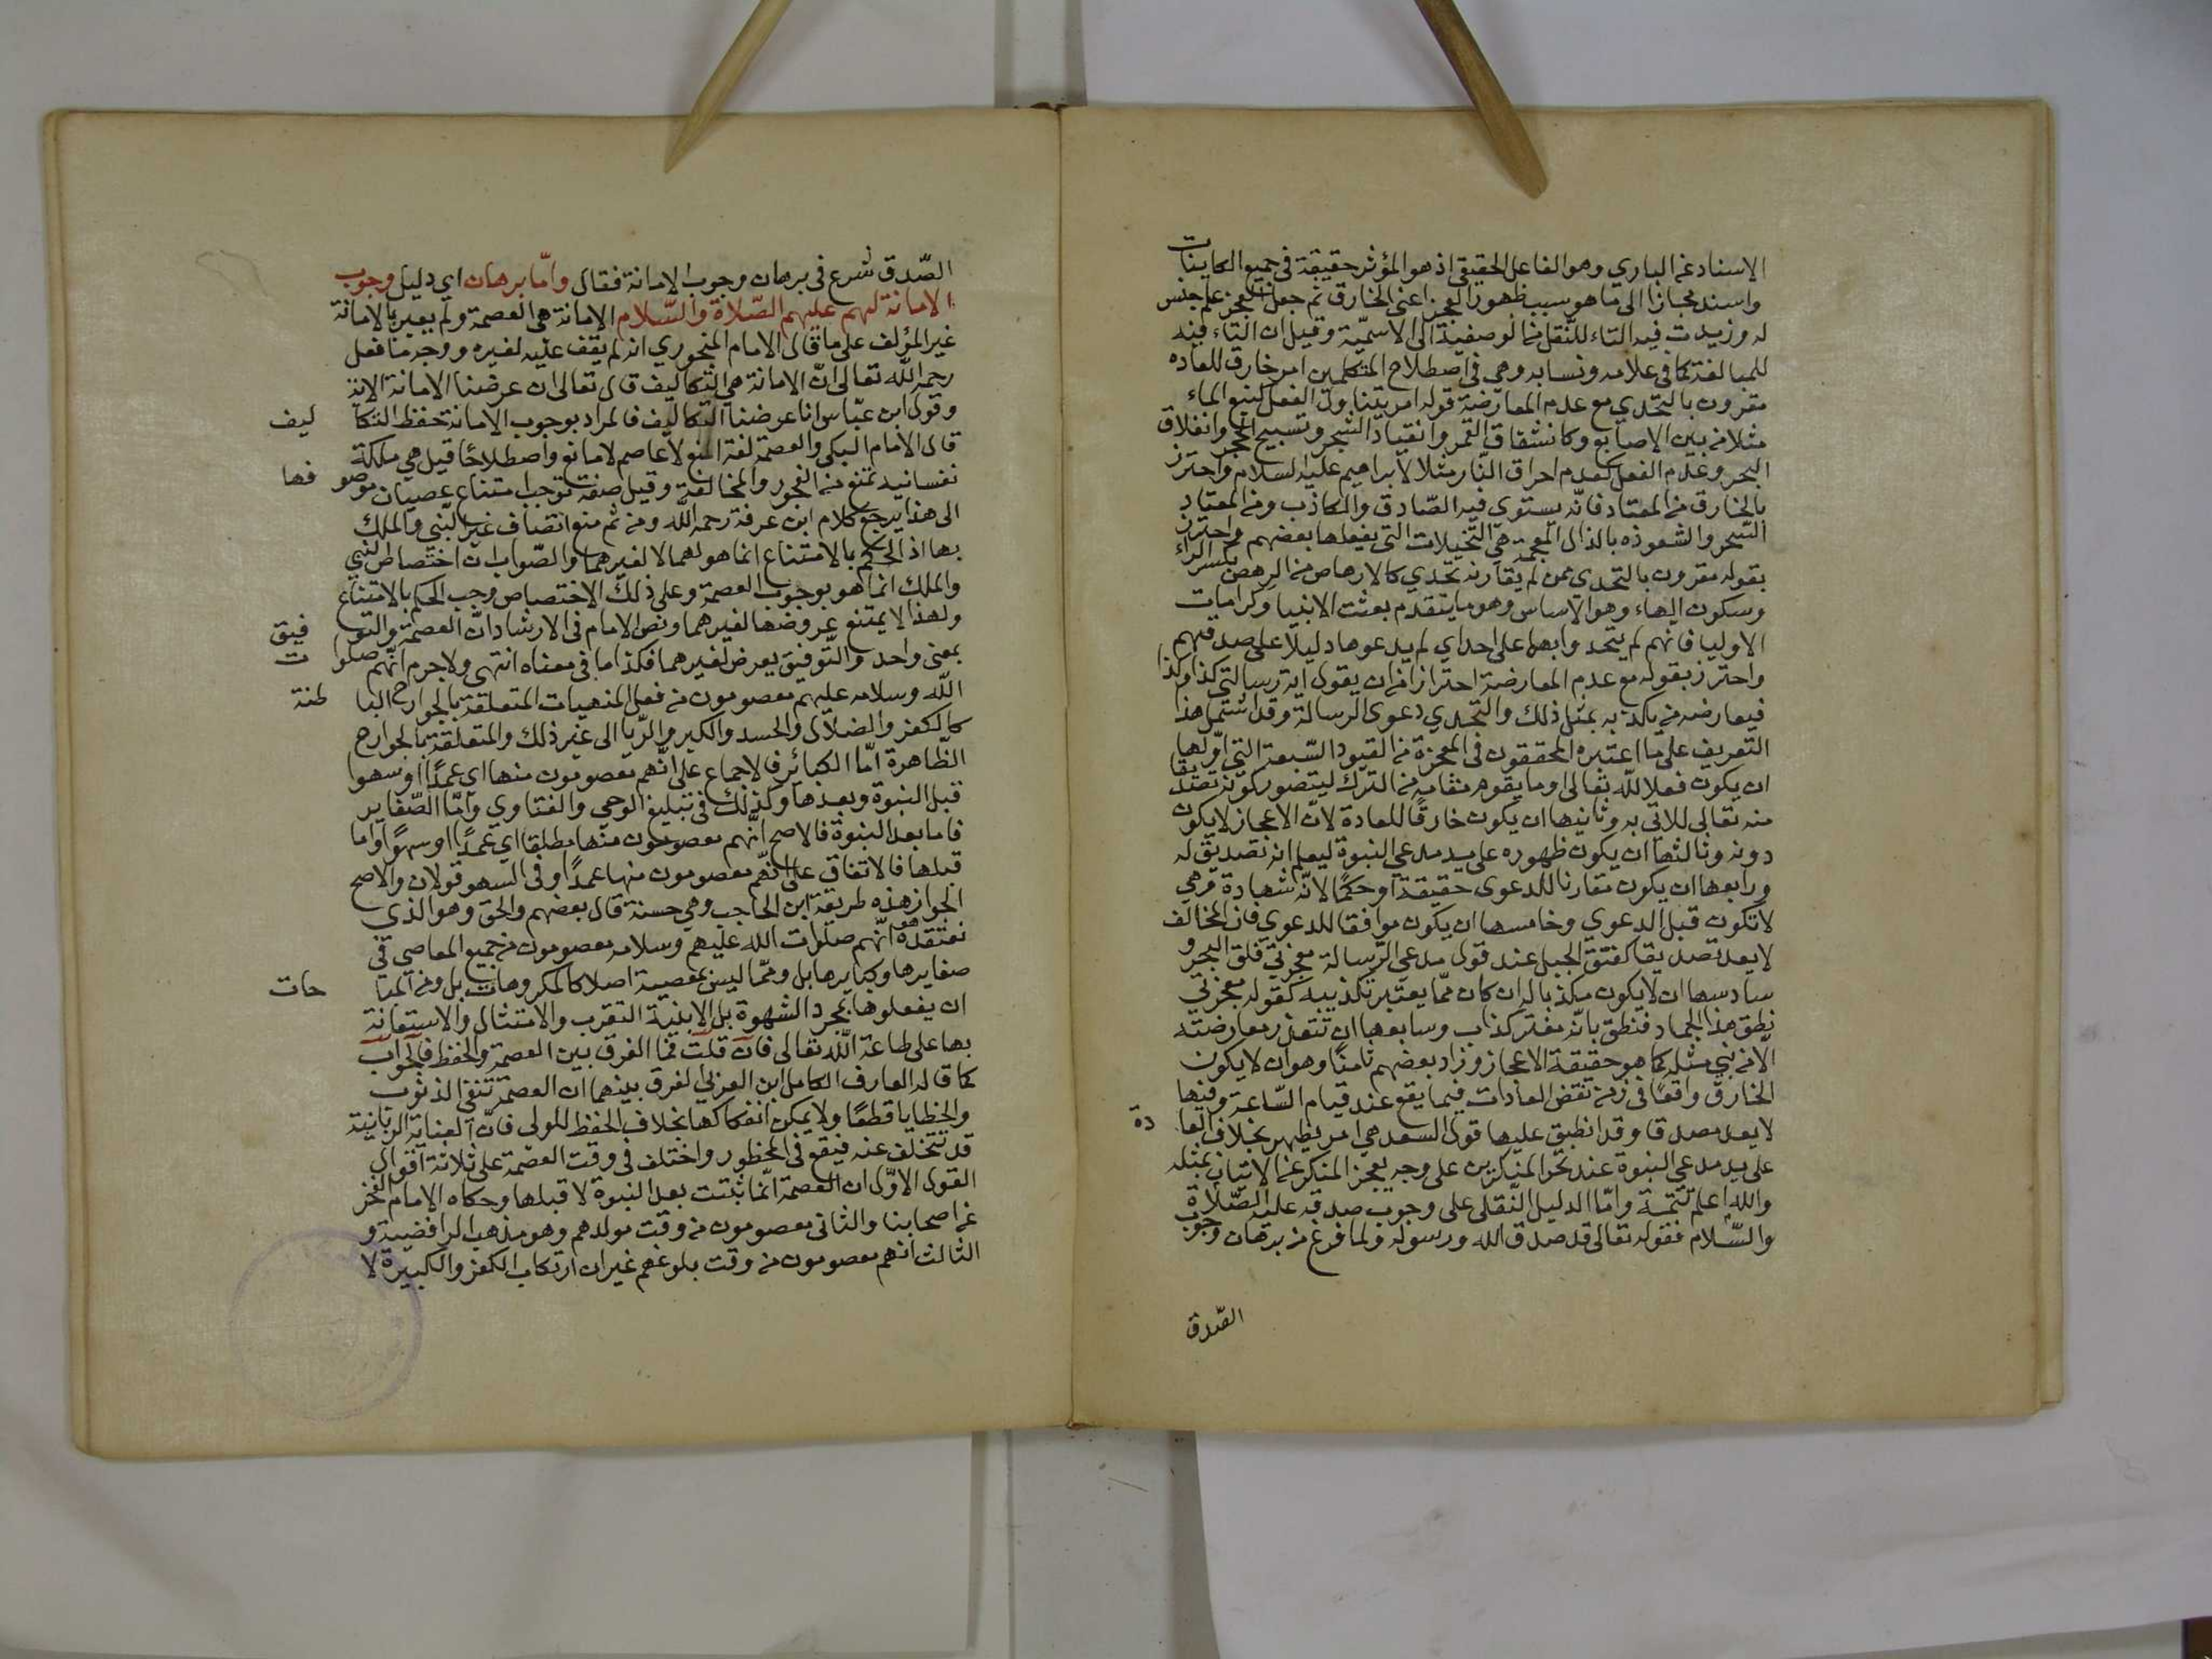 الاسناد عن الباري وهو الفاعل الحقيقي اذ هو المؤثر حقيقة في جميع الكاينات
واسند مجازا الى ما هو سبب ظهور العجز اعني الخارق ثم جعل العجز علم جنس
له وزيدت فيه التاء للنقل من الوصفية الى الاسمية وقيل ان التاء فيه
للمبالغة كما في علامه ونسابه وهي في اصطلاح المتكلمين امر خارق للعاده
مقرون بالتحدي مع عدم المعارضة قوله امر يتناول الفعل كنبع الماء
مثلا من بين الاصابع وكانشقاق القمر وانقياد الشجر وتسبيح الحجر وانفلاق
البحر وعدم الفعل كعدم احراق النّار مثلا لابراهيم عليه السلام واحترز
بالخارق من المعتاد فانّه يستوي فيه الصّادق والكاذب ومن المعتاد
السّحر والشعوذه بالذال المعجمة هي التخيلات التي يفعلها بعضهم واحترز
بقوله مقرون بالتحدي ممن لم يقارنه تحدي كالارهاص من الرهص بكسر الراء
وسكون الهاء وهو الاساس وهو ما يتقدم بعثت الانبيا وكرامات
الاوليا فانهم لم يتحدوا بها على احد اي لم يدعوها دليلا على صدقهم
واحترز بقوله مع عدم المعارضة احترازا من ان يقول اية رسالتي كذا وكذا
فيعارضه من يكذبه بمثل ذلك والتحدي دعوى الرسالة وقد اشتمل هذا
التعريف على ما اعتبره المحققون في المعجزة من القيود السّبعة التي اوّلها
ان يكون فعلا للّه تعالى او ما يقوم مقامه من الترك ليتصور كونه تصديقا
منه تعالى للاتي به وثانيها ان يكون خارقًا للعادة لانّ الاعجاز لا يكون
دونه وثالثها ان يكون ظهوره على يد مدعي النبوة ليعلم انه تصديق له
ورابعها ان يكون مقارنا للدعوى حقيقة او حكمًا لانّه شهادة وهي
لا تكون قبل الدعوي وخامسها ان يكون موافقا للدعوي فان المخالف
لا يعد تصديقا كفتق الجبل عند قول مدعي الرّسالة معجزتي فلق البحر و
سادسها ان لا يكون مكذبا له ان كان ممّا يعتبر تكذيبه كقوله معجزتي
نطق هذا الجماد فنطق بانّه مفتر كذاب وسابعها ان تتعذر معارضته
الّا من نبي مثله كما هو حقيقة الاعجاز وزاد بعضهم ثامنًا وهو ان لا يكون
الخارق واقعًا في زمن نقض العادات فيما يقع عند قيام السّاعة وفيها
لا يعد مصدقا وقد انطبق عليها قول السعد هي امر يظهر بخلاف العادة
على يد مدعي النبوة عند تحدّ المنكرين على وجه يعجز المنكر عن الاتيان بمثله
واللّه اعلم تتمة وامّا الدليل النّقلي على وجوب صدقه عليه الصّلاة
والسّلام فقوله تعالى قد صدق الله ورسوله ولما فرغ من برهان وجوب
الصّدق
الصّدق شرع في برهان وجوب الامانة فقال وامّا برهان اي دليل وجوب
الامانة لهم عليهم الصّلاة والسّلام الامانة هي العصمة ولم يعبر بالامانة
غير المؤلف على ما قال الامام المنجوري انه لم يقف عليه لغيره ووجه ما فعل
رحمه اللّه تعالى انّ الامانة هي التكاليف قال تعالى ان عرضنا الامانة الاية
وقول ابن عبّاس انا عرضنا التكاليف فالمراد بوجوب الامانة حفظ التكاليف
قال الامام البكي والعصمة لغة المنع لا عاصم لا مانع واصطلاحًا قيل هي ملكة
نفسانية تمنع من الفجور والمخالفة وقيل صفة توجب امتناع عصيان موصوفها
الى هذا يرجع كلام ابن عرفة رحمه اللّه ومن ثم منع اتصاف غير النّبي والملك
بها اذ الحكم بالامتناع انما هو لهما لا لغيرهما والصّواب ان اختصاص النبي
والملك انما هو بوجوب العصمة وعلى ذلك الاختصاص وجب الحكم بالامتناع
ولهذا لا يمتنع عروضها لغيرهما ونص الامام في الارشاد انّ العصمة والتوفيق
بمعنى واحد والتّوفيق يعرض لغيرهما فكذا ما في معناه انتهى ولا جرم انّهم صلوات
اللّه وسلامه عليهم معصومون من فعل المنهيات المتعلقة بالجوارح الباطنة
كالكفر والضلال والحسد والكبر والرّيا الى غير ذلك والمتعلقة بالجوارح
الظّاهرة امّا الكبائر فالاجماع على انّهم معصومون منها اي عمدًا او سهوا
قبل النبوة وبعدها وكذلك في تبليغ الوحي والفتاوي وامّا الصّغاير
فاما بعد النبوة فالاصح انّهم معصومون منها مطلقا اي عمدًا او سهوًا واما
قبلها فالاتفاق على انّهم معصومون منها عمدًا وفي السهو قولان والاصح
الجواز هذه طريقة ابن الحاجب وهي حسنة قال بعضهم والحق وهو الذي
نعتقده انّهم صلوات الله عليهم وسلامه معصومون من جميع المعاصي في
صغايرها وكبايرها بل وممّا ليس بمعصية اصلا كالمكروهات بل ومن المباحات
ان يفعلوها بمجرد الشهوة بل الا بنية التقرب والامتثال والاستعانة
بها على طاعة اللّه تعالى فان قلت فما الفرق بين العصمة والحفظ فالجواب
كما قاله العارف الكامل ابن العربي الفرق بينهما ان العصمة تنفي الذنوب
والخطايا قطعًا ولا يمكن انفكاكها بخلاف الحفظ للولي فانّ العناية الربانية
قد تتخلف عنه فيقع في المحظور واختلف في وقت العصمة على ثلاثة اقوال
القول الاوّل ان العصمة انّما ثبتت بعد النبوة لا قبلها وحكاه الامام الفخر
عن اصحابنا والثاني معصومون من وقت مولدهم وهو مذهب الرافضية و
الثالث انهم معصومون من وقت بلوغهم غير ان ارتكاب الكفر والكبيرة لا